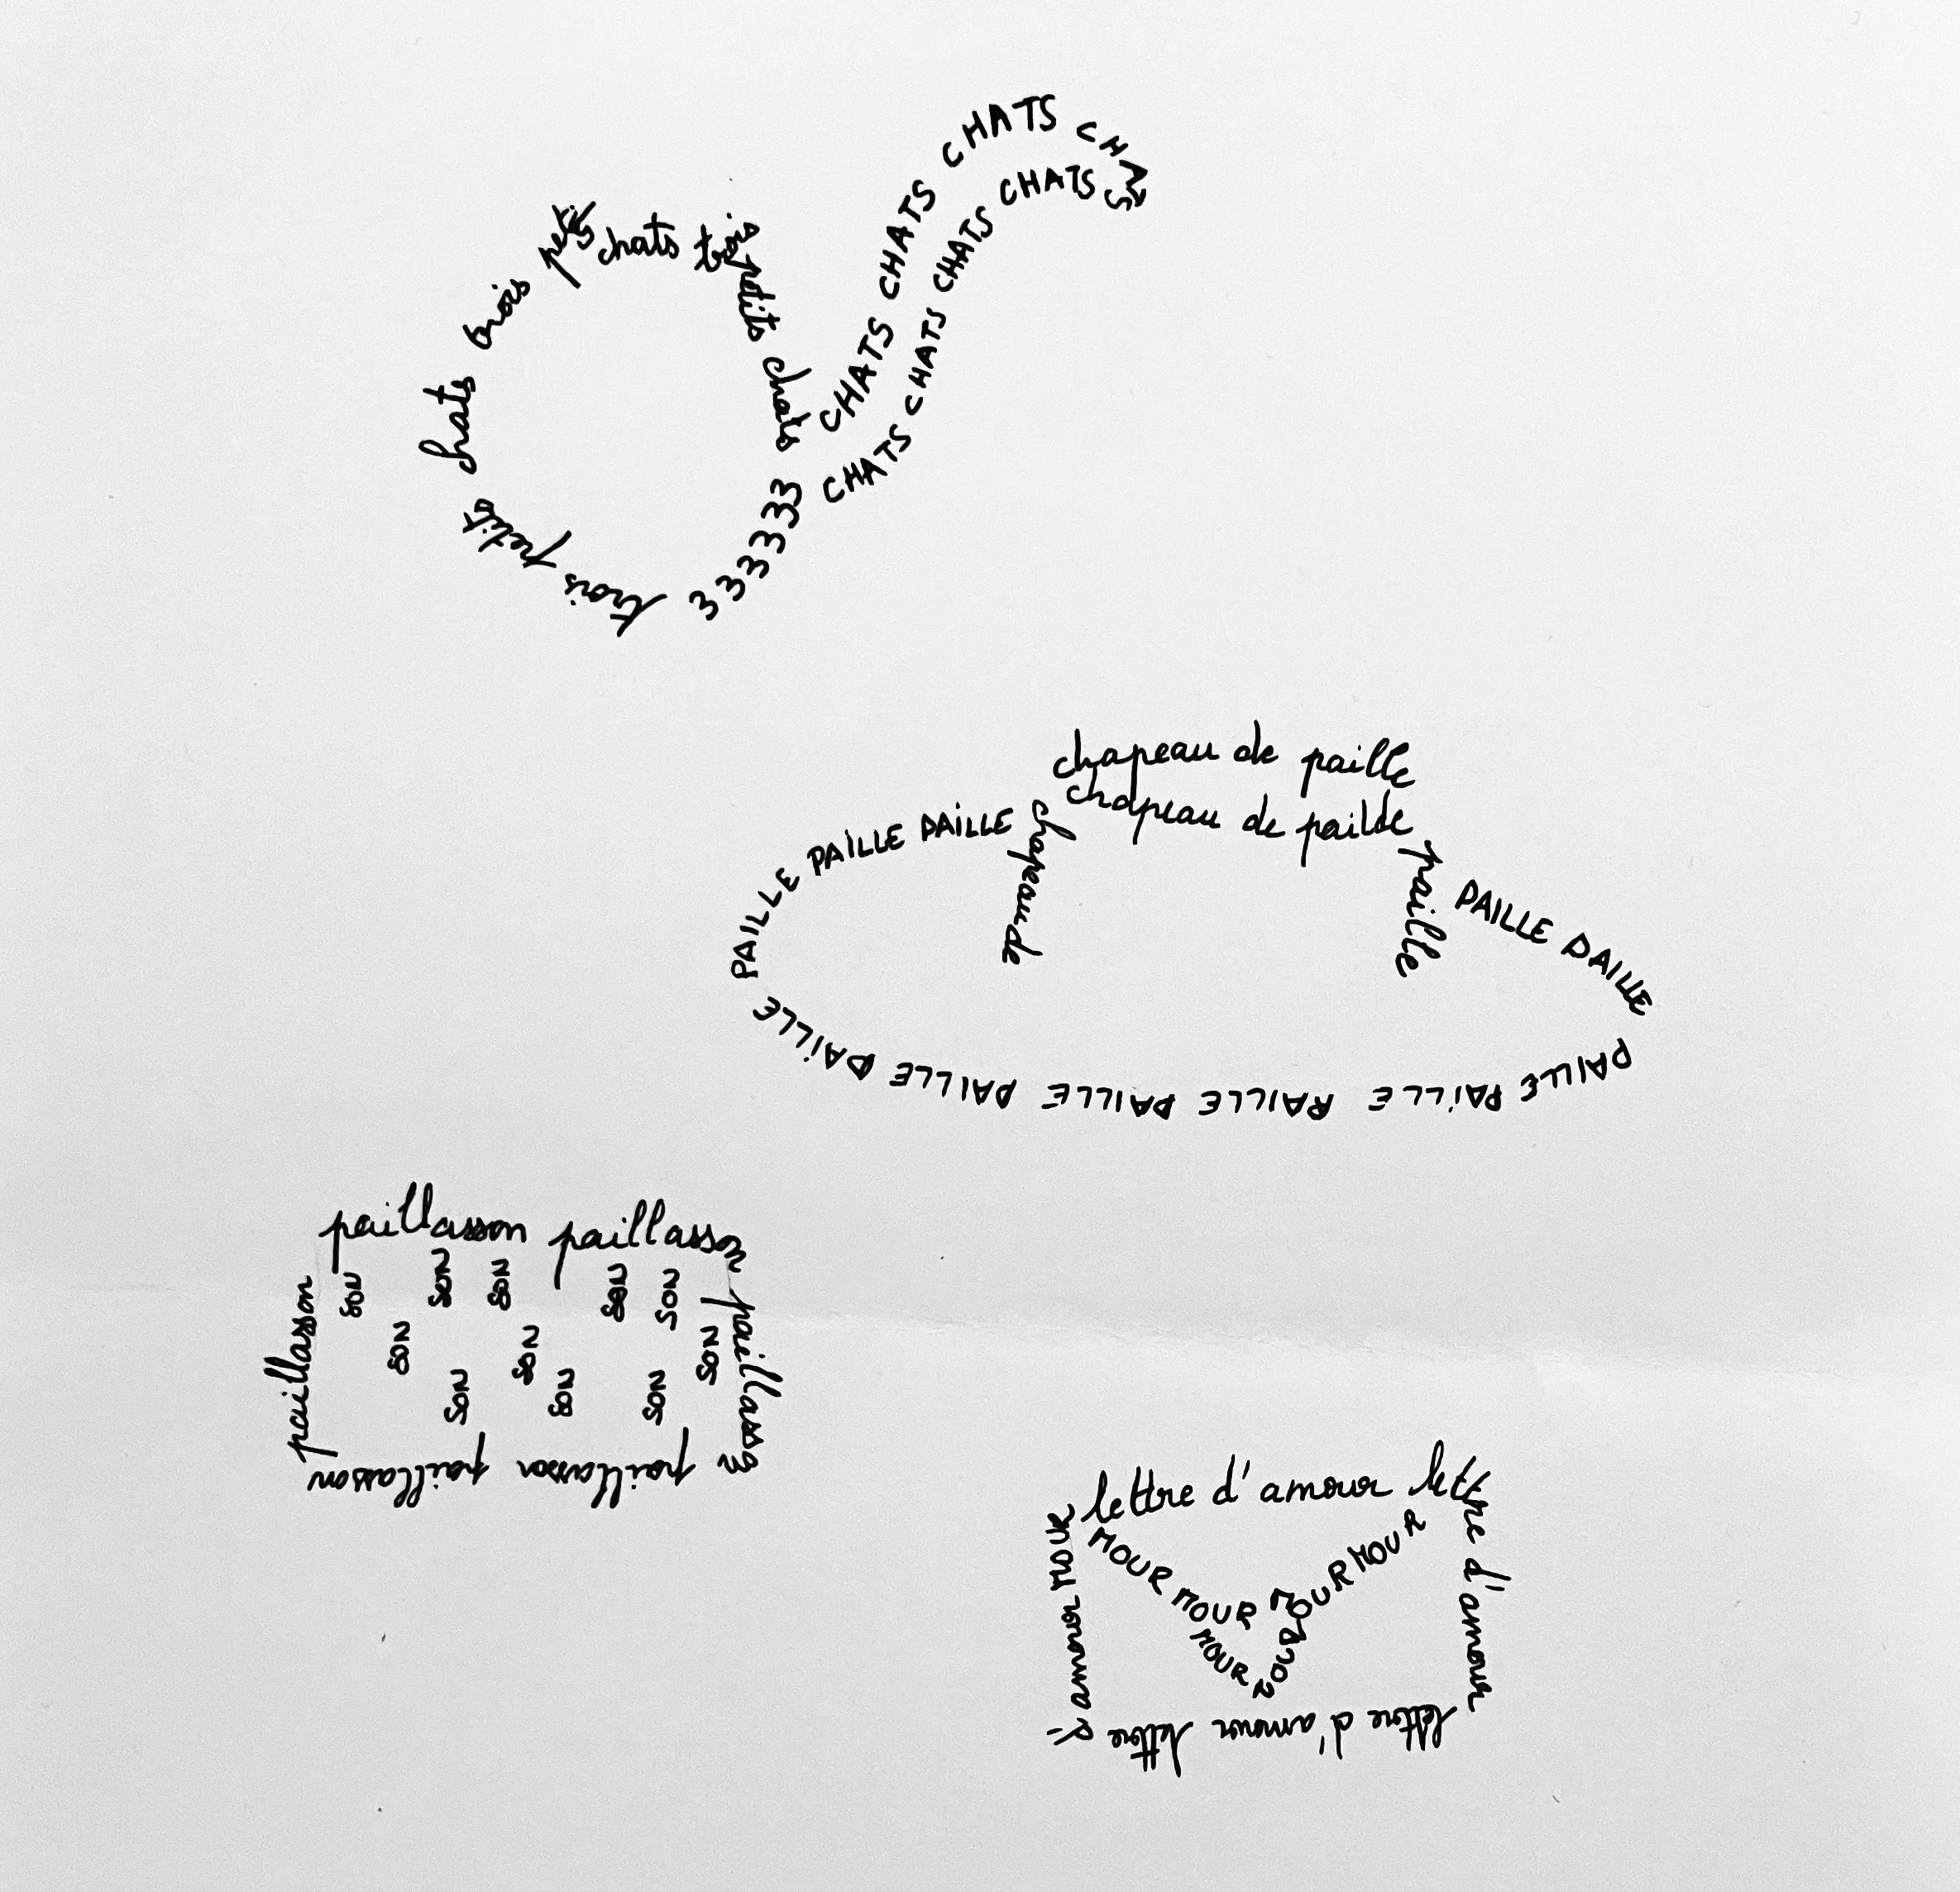 trois petits chats trois petits chats trois petits chats
3 3 3 3 3 3 3
CHATS CHATS CHATS CHATS
CHATS CHATS CHATS CHATS CHATS
chapeau de paille
chapeau de paille
chapeau de
paille
PAILLE PAILLE PAILLE
PAILLE PAILLE
PAILLE PAILLE PAILLE PAILLE PAILLE PAILLE
paillasson paillasson
paillasson
paillasson paillasson
paillasson
SON SON SON SON SON
SON SON SON
SON SON SON
lettre d'amour lettre d'amour
lettre d'amour lettre
d'amour MOUR
MOUR MOUR MOUR MOUR
MOUR MOUR